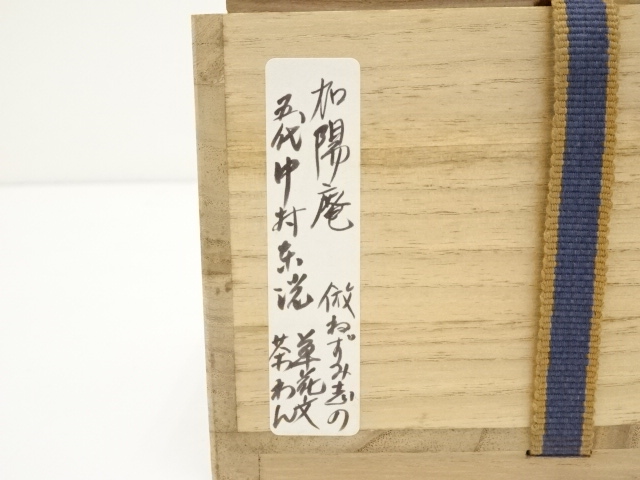 加陽庵
五代中村東洸
倣ねずみ志の
草花文
茶わん